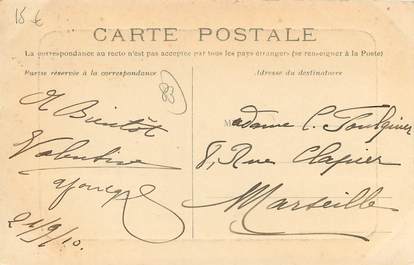 15 €
CARTE POSTALE
La correspondance au recto n'est pas acceptée par tous les pays étrangers (se renseigner à la Poste)
Partie réservée à la correspondance
Adresse du destinataire
83
A Bientôt
Valentine
24/9/10.
Madame C.
8, Rue Clapier
Marseille